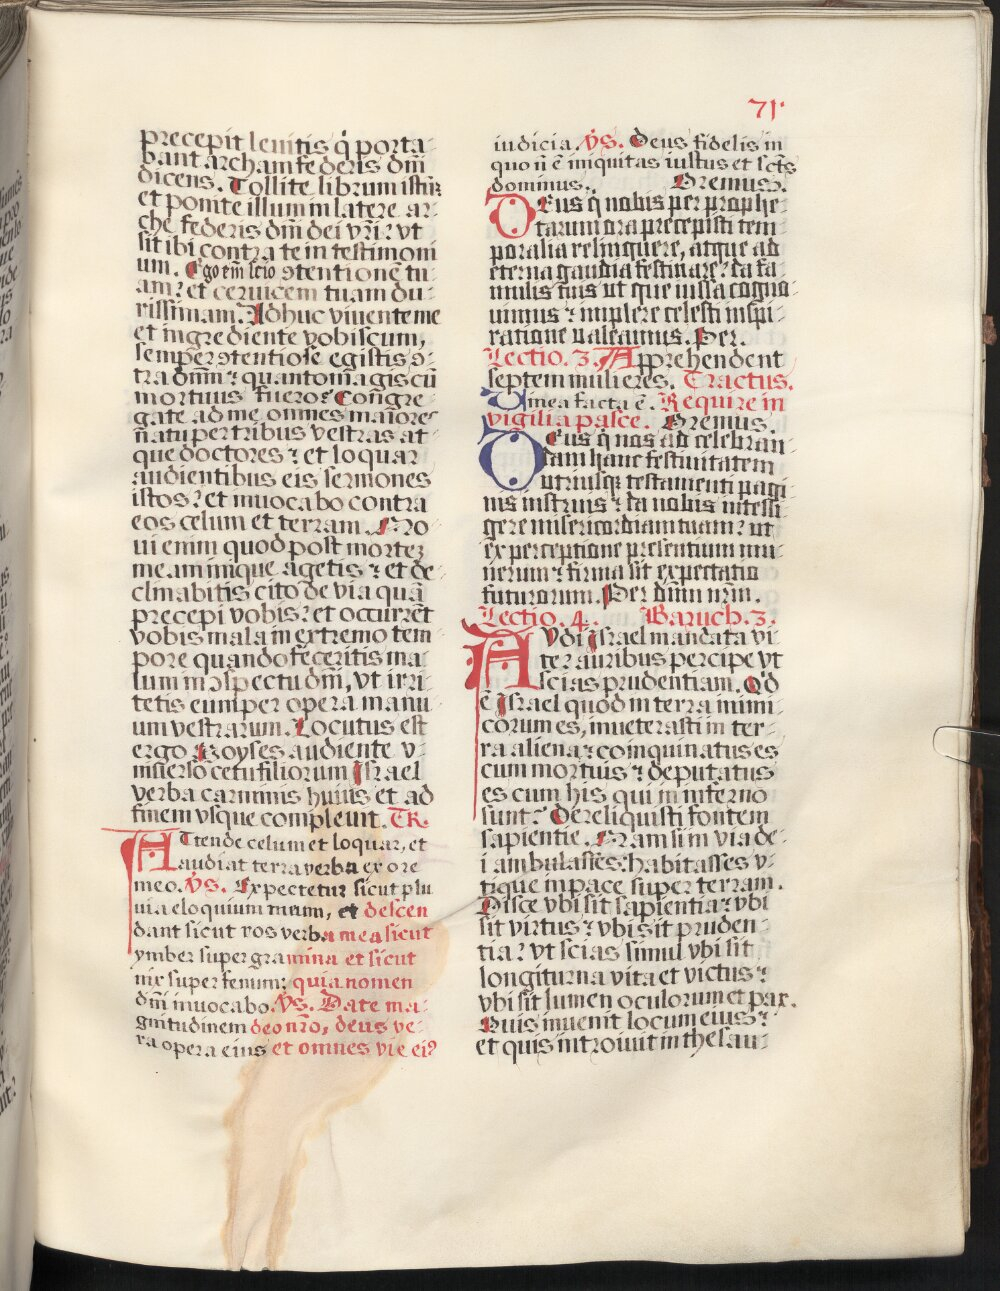 71·
precepit leuitis q̇ porta-
bant archam federis dn̄i
dicens. Tollite librum istū
et ponite illum in latere ar-
che federis dn̄i dei vr̄i: vt
sit ibi contra te in testimoni
um. Ego em̄ scio ꝯtentionē tu-
am: et ceruicem tuam du-
rissimam. Adhuc viuente me
et ingrediente vobiscum,
semper ꝯtentiose egistis ꝯ-
tra dn̄m: quantomagis cū
mortuus fuero: Congre-
gate ad me omnes maiores
natu per tribus vestras at-
que doctores: et loquar
audientibus eis sermones
istos: et inuocabo contra
eos celum et terram. No-
ui enim quod post mortez
meam inique agetis: et de-
clinabitis cito de via quā
precepi vobis: et occurrēt
vobis mala in extremo tem-
pore quando feceritis ma-
lum in ꝯspectu dn̄i, vt irri-
tetis eum per opera manu-
um vestrarum. Locutus est
ergo Moyses audiente v-
niuerso cetu filiorum Israel
verba carminis huius et ad
finem vsque compleuit. TR.
Attende celum et loquar, et
audiat terra verba ex ore
meo. V̄S. Expectetur sicut plu
uia eloquium meum, et descen
dant sicut ros verba mea sicut
ymber super gramina et sicut
nix super fenum: quia nomen
dn̄i inuocabo. V̄S. Date ma-
gnitudinem deo nr̄o, deus ve-
ra opera eius et omnes vie ei⁹
iudicia. V̄S. Deus fidelis in
quo nō ē iniquitas iustus et sctūs
dominus. Oremus.
Deus q̇ nobis per prophe-
tarum ora precepisti tem-
poralia relinquere, atque ad
eterna gaudia festinare: da fa-
mulis tuis ut que iussa cogno-
uimus: implere celesti inspi-
ratione ualeamus. Per.
Lectio. 3. Apprehendent
septem mulieres. Tractus.
Vinea facta ē. Require in
vigilia pasce. Oremus.
Deus q̇ nos ad celebran-
dam hanc festiuitatem
utriusq; testamenti pagi-
nis instruis: da nobis intelli-
gere misericordiam tuam: ut
ex perceptione presentium mu-
nerum: firma sit expectatio
futurorum. Per dn̄m nr̄m.
Lectio. 4. Baruch. 3.
Avdi Israel mandata vi-
te: auribus percipe vt
scias prudentiam. Qd̄
ē Israel quod in terra inimi-
corum es, inueterasti in ter-
ra aliena: coinquinatus es
cum mortuis: deputatus
es cum his qui in inferno
sunt: Dereliquisti fontem
sapientie. Nam si in via de-
i ambulasses: habitasses v-
tique in pace super terram.
Disce vbi sit sapientia: vbi
sit virtus: vbi sit pruden-
tia: vt scias simul vbi sit
longiturna vita et victus:
vbi sit lumen oculorum et pax.
Quis inuenit locum eius:
et quis introiuit in thesau-